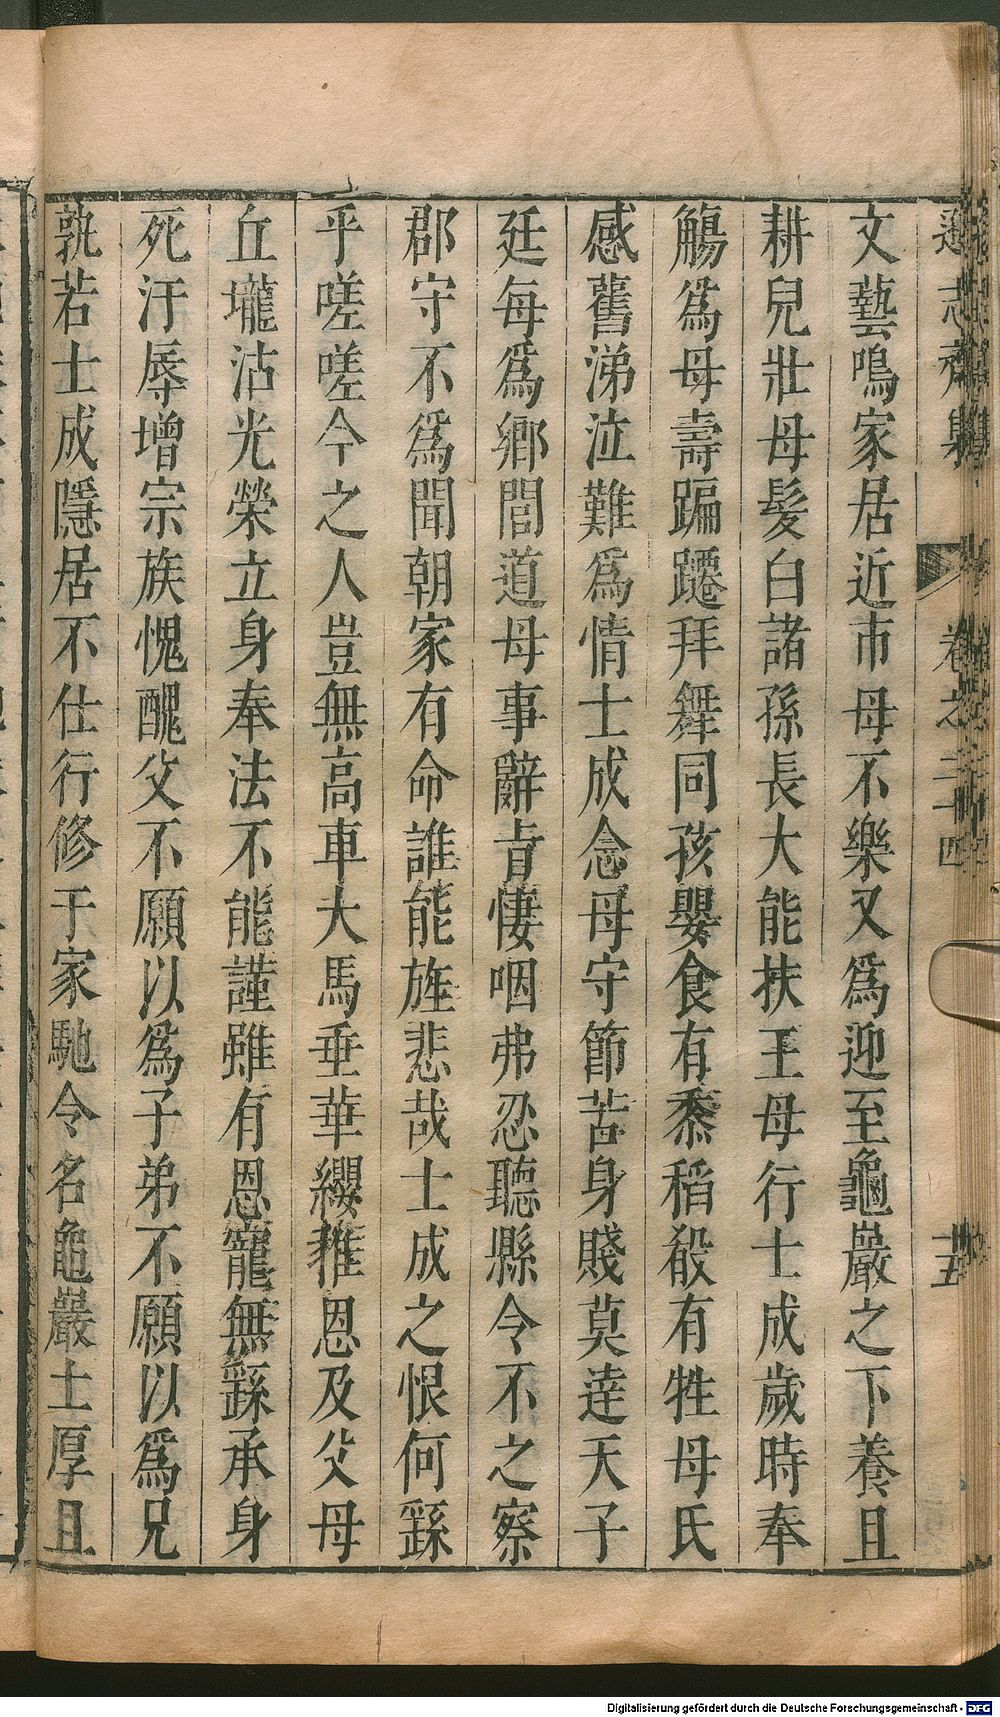 遜志齋集 卷之二十四 十五
文藝鳴家居近市母不樂又爲迎至龜巖之下養且
耕兒壯母髮白諸孫長大能扶王母行士成歲時奉
觴爲母壽蹁躚拜舞同孩嬰食有黍稻殺有牲母氏
感舊涕泣難爲情士成念母守節苦身賤莫達天子
廷每爲鄉閭道母事辭旹悽咽弗忍聽縣令不之察
郡守不爲聞朝家有命誰能旌悲哉士成之恨何繇
乎嗟嗟今之人豈無高車大馬垂華纓推恩及父母
丘壠沾光榮立身奉法不能謹雖有恩寵無繇承身
死汙辱增宗族愧醜父不願以爲子弟不願以爲兄
孰若士成隱居不仕行修于家馳令名龜巖土厚且
Digitalisierung gefördert durch die Deutsche Forschungsgemeinschaft - DFG